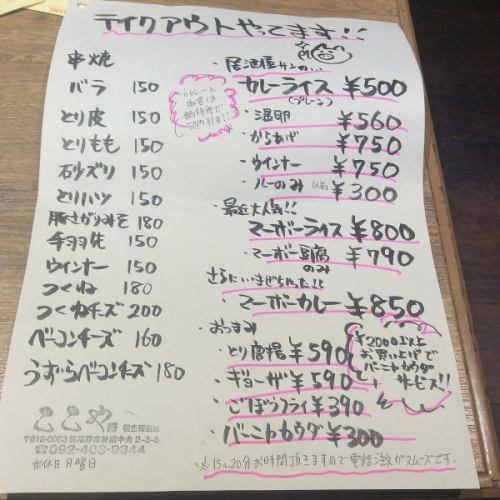 テイクアウトやってます!!
串焼
バラ 150
とり皮 150
とりもも 150
砂ズリ 150
とりハツ 150
豚さがりみそ 180
手羽先 150
ウインナー 150
つくね 180
つくねチーズ 200
ベーコンチーズ 160
うずらベーコンチーズ 180
ここや
〒818-0083 筑紫野市針摺中央2-3-5
☎092-408-9344
定休日 月曜日
・居酒屋サンの…
カレーライス ¥500
(プレーン)
・温卵 ¥560
・からあげ ¥750
・ウインナー ¥750
・ルーのみ 1人前 ¥300
・最近大人気!!
マーボーライス ¥800
・マーボー豆腐のみ ¥790
さらにいまぜちゃった!!
マーボーカレー ¥850
・おつまみ
・とり唐揚 ¥590
・ギョーザ ¥590
・ごぼうフライ ¥390
・バーニャカウダ ¥300
¥2000以上
お買い上げで
バーニャカウダ
サービス!!
※15~20分お時間頂きますので電話注文がスムーズです。